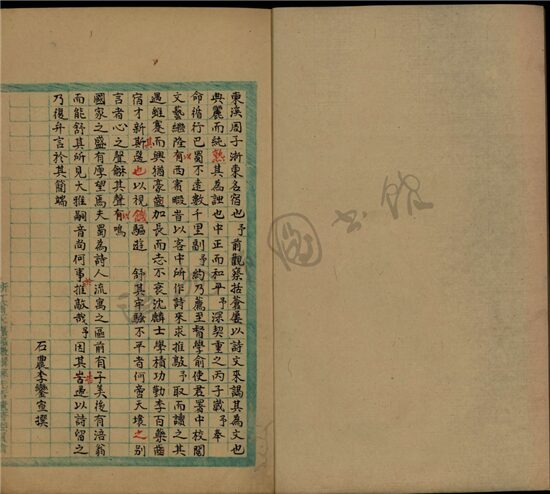 東溪周子浙東名宿也予前觀察括蒼屢以詩文來謁其為文也
典麗而純熟其為詩也中正而和平予深契重之丙子歲予奉
命循行巴蜀不遠數千里剔予約乃薦至督學俞使君署中校閱
文藝繼陸有西賓暇昔以客中所作詩來求推敲予取而讀之其
遇雖蹇而興猶豪齒加長而志不衰沈麟士學積功勤李百藥齒
宿才新斯邁也以視饑驅遊 舒其牢騷不平者何啻天壤之別
言者心之聲緐其聲有鳴
國家之盛有厚望焉夫蜀為詩人流寓之區前有子美後有涪翁
而能舒其所見大雅嗣音尚何事推敲哉予因其苦遇以詩留之
乃復弁言於其簡端
石農李鑾宣撰
圖書館